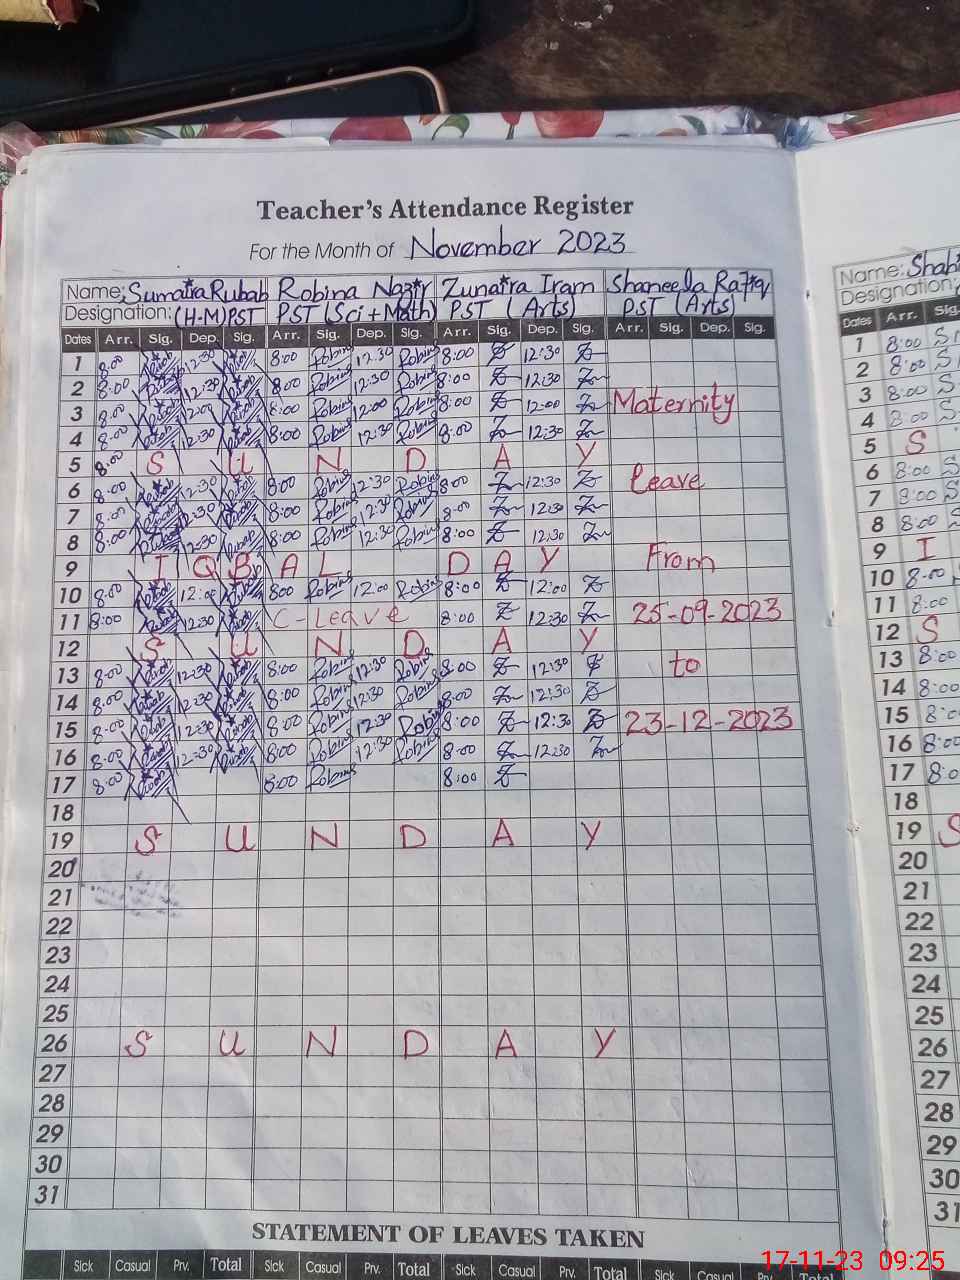 Teacher's Attendance Register
For the Month of November 2023
Name: Sumaira Rubab Robina Nazir Zunaira Iram Shaneela Rafiq
Designation: (H-M) PST PST (Sci + Math) PST (Arts) PST (Arts)
Dates Arr. Sig. Dep. Sig. Arr. Sig. Dep. Sig. Arr. Sig. Dep. Sig. Arr. Sig. Dep. Sig.
1 8:00 12:30 8:00 Robina 12:30 Robina 8:00 12:30
2 8:00 12:30 8:00 Robina 12:30 Robina 8:00 12:30
3 8:00 12:00 8:00 Robina 12:00 Robina 8:00 12:00 Maternity
4 8:00 12:30 8:00 Robina 12:30 Robina 8:00 12:30
5 8:00 S U N D A Y
6 8:00 12:30 8:00 Robina 12:30 Robina 8:00 12:30 Leave
7 8:00 12:30 8:00 Robina 12:30 Robina 8:00 12:30
8 8:00 12:30 8:00 Robina 12:30 Robina 8:00 12:30
9 I Q B A L D A Y From
10 8:00 12:00 800 Robina 12:00 Robina 8:00 12:00
11 8:00 12:30 C-Leave 8:00 12:30 25-09-2023
12 S U N D A Y
13 8:00 12:30 8:00 Robina 12:30 Robina 8:00 12:30 to
14 8:00 12:30 8:00 Robina 12:30 Robina 8:00 12:30
15 8:00 12:30 8:00 Robina 12:30 Robina 8:00 12:30 23-12-2023
16 8:00 12:30 8:00 Robina 12:30 Robina 8:00 12:30
17 8:00 8:00 Robina 8:00
18
19 S U N D A Y
20
21
22
23
24
25
26 S U N D A Y
27
28
29
30
31
STATEMENT OF LEAVES TAKEN
Sick Casual Prv. Total Sick Casual Prv. Total Sick Casual Prv. Total Sick Casual Prv. Total
Name: Shabi
Designation:
Dates Arr. Sig.
1 8:00
2 8:00
3 8:00
4 8:00
5 S
6 8:00
7 8:00
8 8:00
9 I
10 8:00
11 8:00
12 S
13 8:00
14 8:00
15 8:0
16 8:00
17 8:0
18
19 S
20
21
22
23
24
25
26
27
28
29
30
31
17-11-23 09:25